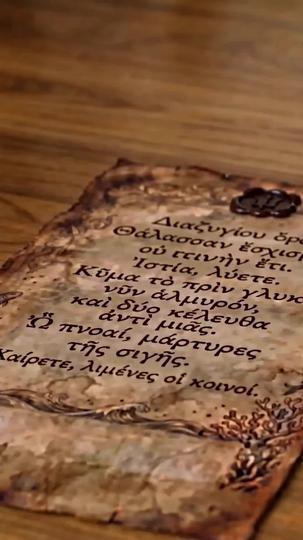 Διαζυγίου
Θάλασσαν
οὐ πινὴν ἔτι.
Ἱστία, λύετε.
Κῦμα τὸ πρὶν
νῦν ἁλμυρόν,
καὶ δύο κέλευθα
ἀντὶ μιᾶς.
Ὢ πνοαί, μάρτυρες
τῆς σιγῆς.
Χαίρετε, λιμένες οἱ κοινοί.